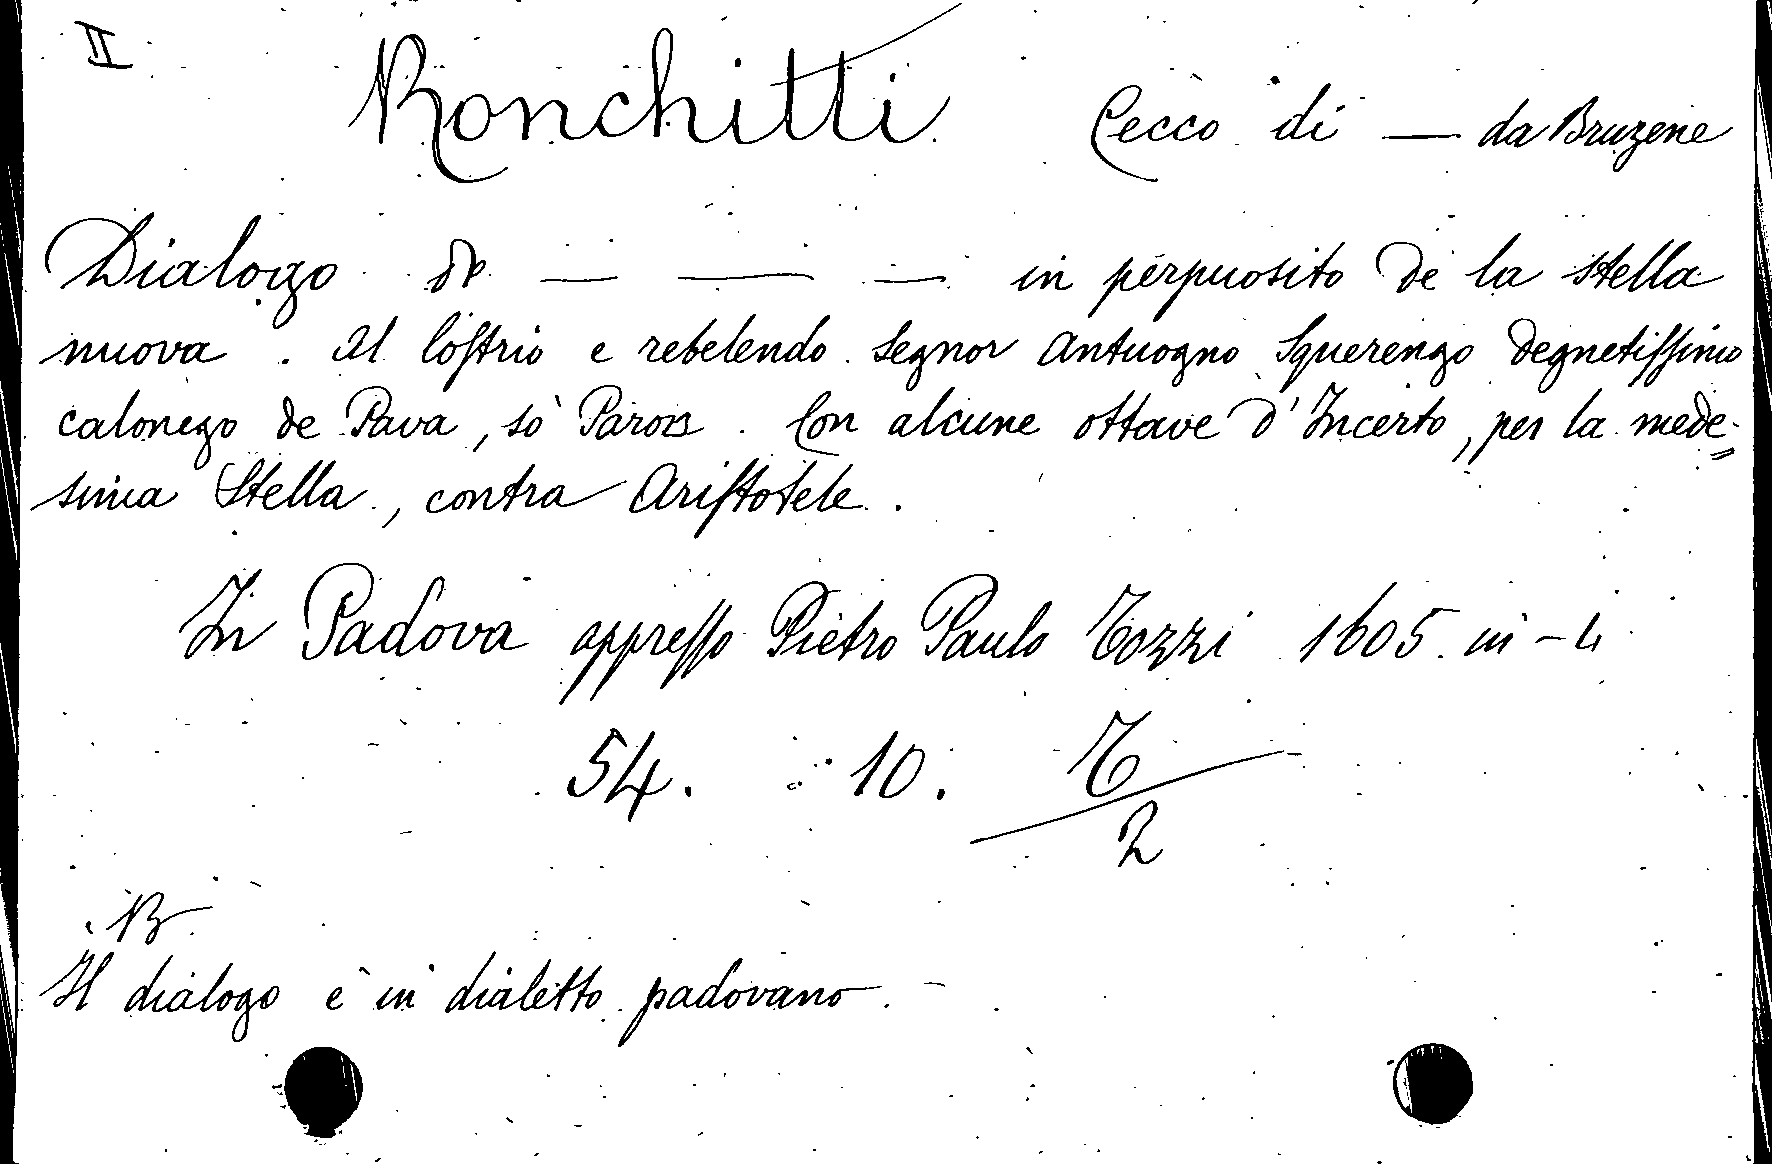 II
Ronchitti Cecco di — da Bruzene
Dialogo de — — — in perpuosito de la stella
nuova. Al lostrio e rebelendo Segnor Antuogno Squerengo degnetissimo
calonego de Pava, sò Paron. Con alcune ottave d'Incerto, per la mede=
sima Stella, contra Aristotele.
In Padova appresso Pietro Paulo Tozzi 1605. in-4
54. 10. T/2
NB
Il dialogo è in dialetto padovano.